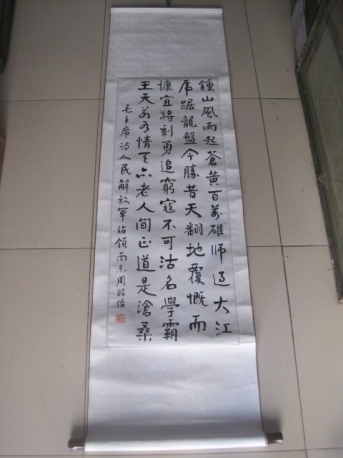 鍾山風雨起蒼黃百萬雄師过大江
虎踞龍盤今勝昔天翻地覆慨而
慷宜將剩勇追窮寇不可沽名學霸
王天若有情天亦老人間正道是滄桑
毛主席詩人民解放軍佔領南京周昭怡